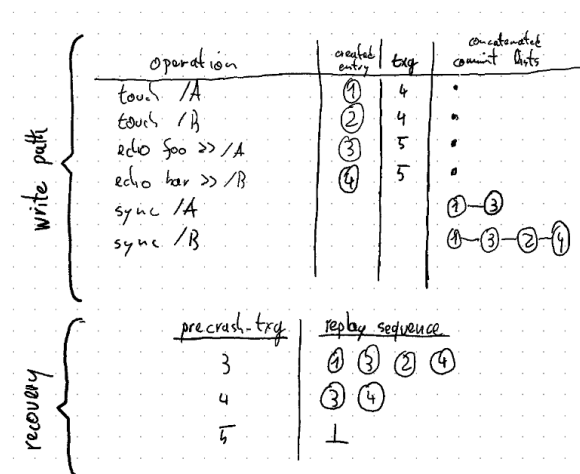 write path
operation created entry txg concatenated commit lists
touch /A 1 4 •
touch /B 2 4 •
echo foo >> /A 3 5 •
echo bar >> /B 4 5 •
sync /A 1-3
sync /B 1-3-2-4
recovery
precrash-txg replay sequence
3 1 3 2 4
4 3 4
5 ⊥